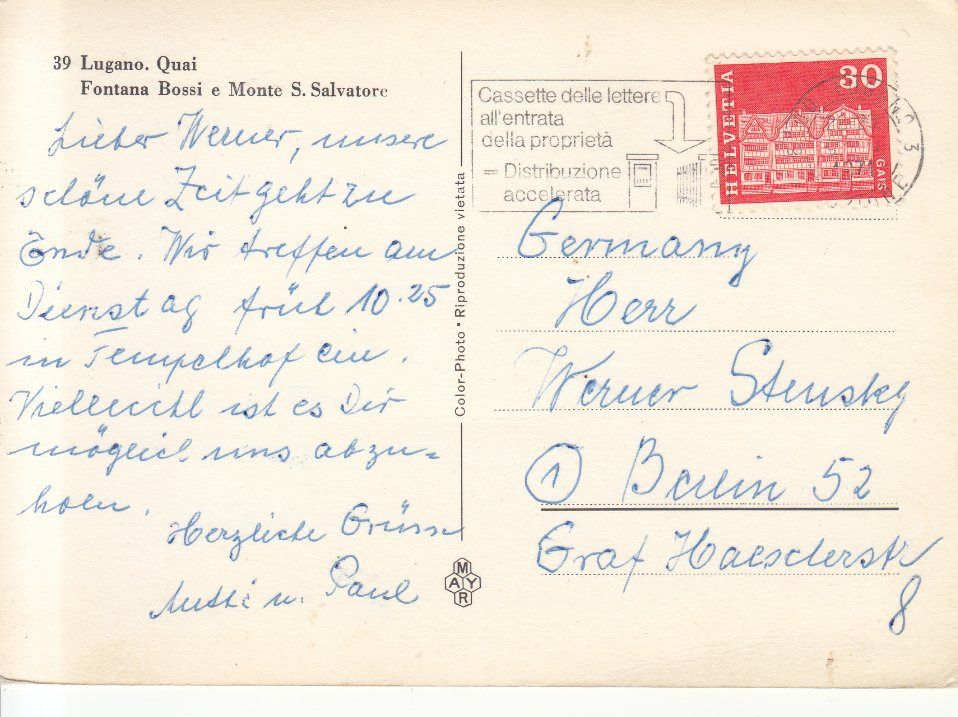 39 Lugano. Quai
Fontana Bossi e Monte S. Salvatore
Lieber Werner, unsere
schöne Zeit geht zu
Ende. Wir treffen am
Dienstag früh 10.25
in Tempelhof ein.
Vielleicht ist es Dir
möglich uns abzu-
holen.
Herzliche Grüsse
Mutti u. Paul
Color-Photo • Riproduzione vietata
MAYR
Cassette delle lettere
all'entrata
della proprietà
= Distribuzione
accelerata
HELVETIA
30
GAIS
3
Germany
Herr
Werner Stensky
1 Berlin 52
Graf Haeselerstr
8